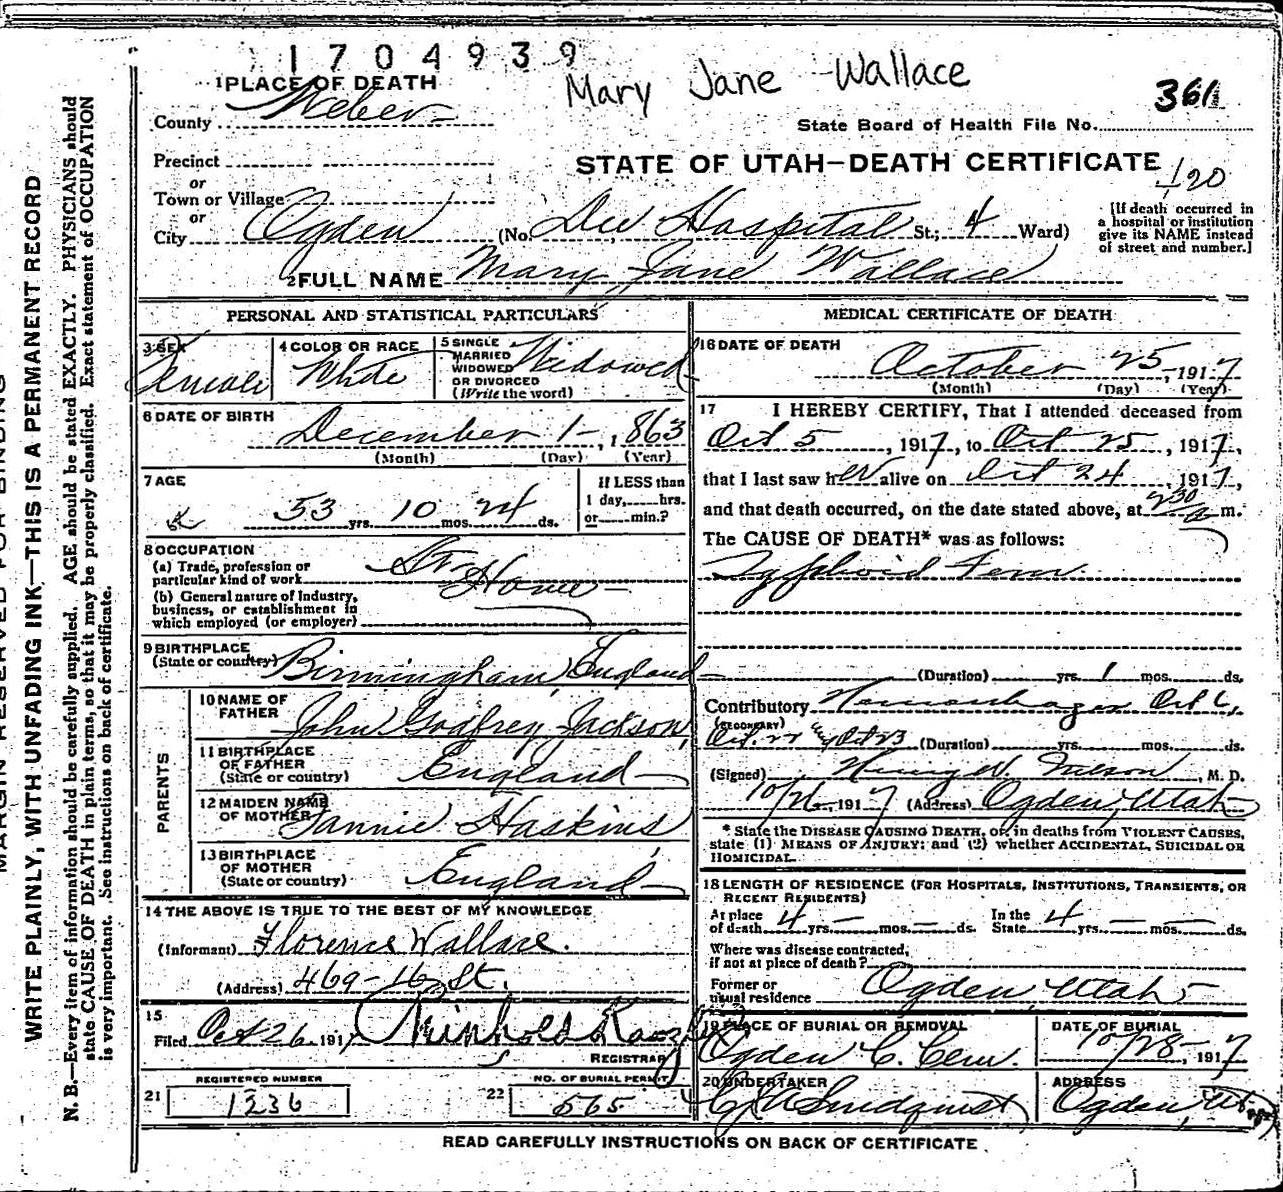 1704939
Mary Jane Wallace
361
1 PLACE OF DEATH
County Weber
State Board of Health File No.
Precinct
STATE OF UTAH—DEATH CERTIFICATE
120
or
Town or Village
or
City Ogden (No. Dee Hospital St.; 4 Ward)
[If death occurred in
a hospital or institution
give its NAME instead
of street and number.]
2 FULL NAME Mary Jane Wallace
PERSONAL AND STATISTICAL PARTICULARS
3 SEX
Female
4 COLOR OR RACE
White
5 SINGLE
MARRIED
WIDOWED
OR DIVORCED
(Write the word)
Widowed
6 DATE OF BIRTH
December 1, 1863
(Month) (Day) (Year)
7 AGE
53 yrs. 10 mos. 24 ds.
If LESS than
1 day, hrs.
or min.?
8 OCCUPATION
(a) Trade, profession or
particular kind of work
At Home
(b) General nature of Industry,
business, or establishment in
which employed (or employer)
9 BIRTHPLACE
(State or country) Birmingham, England
PARENTS
10 NAME OF
FATHER John Godfrey Jackson
11 BIRTHPLACE
OF FATHER
(State or country) England
12 MAIDEN NAME
OF MOTHER Fannie Haskins
13 BIRTHPLACE
OF MOTHER
(State or country) England
14 THE ABOVE IS TRUE TO THE BEST OF MY KNOWLEDGE
(Informant) Florence Wallace.
(Address) 469-16 St.
15
Filed Oct 26, 1917
REGISTRAR
REGISTERED NUMBER
21 1236
NO. OF BURIAL PERMIT
22 565
MEDICAL CERTIFICATE OF DEATH
16 DATE OF DEATH
October 25, 1917
(Month) (Day) (Year)
17 I HEREBY CERTIFY, That I attended deceased from
Oct 5, 1917, to Oct 25, 1917,
that I last saw her alive on Oct 24, 1917,
and that death occurred, on the date stated above, at 230 a m.
The CAUSE OF DEATH* was as follows:
Typhoid Fever
(Duration) yrs. 1 mos. ds.
Contributory Hemorrhages Oct 6,
(SECONDARY)
Oct. 22 & Oct 23 (Duration) yrs. mos. ds.
(Signed) M. D.
10/26, 1917 (Address) Ogden, Utah
* State the DISEASE CAUSING DEATH, or, in deaths from VIOLENT CAUSES,
state (1) MEANS OF INJURY; and (2) whether ACCIDENTAL, SUICIDAL OR
HOMICIDAL.
18 LENGTH OF RESIDENCE (FOR HOSPITALS, INSTITUTIONS, TRANSIENTS, OR
RECENT RESIDENTS)
At place
of death 4 yrs. — mos. — ds.
In the
State 4 yrs. — mos. — ds.
Where was disease contracted,
if not at place of death?
Former or
usual residence Ogden, Utah
19 PLACE OF BURIAL OR REMOVAL
Ogden C. Cem.
DATE OF BURIAL
10/28, 1917
20 UNDERTAKER
ADDRESS
Ogden, Ut.
READ CAREFULLY INSTRUCTIONS ON BACK OF CERTIFICATE
MARGIN RESERVED FOR BINDING
WRITE PLAINLY, WITH UNFADING INK—THIS IS A PERMANENT RECORD
N. B.—Every item of information should be carefully supplied. AGE should be stated EXACTLY. PHYSICIANS should
state CAUSE OF DEATH in plain terms, so that it may be properly classified. Exact statement of OCCUPATION
is very important. See instructions on back of certificate.